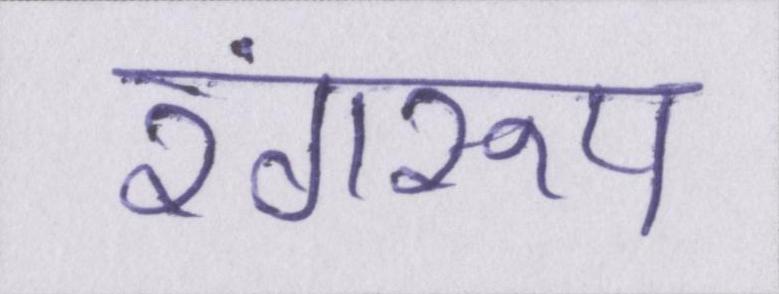 रंगरूप